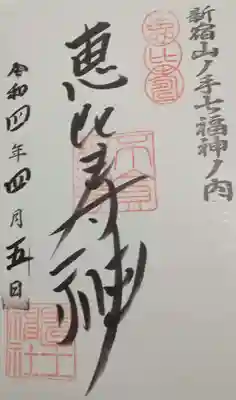 新宿山ノ手七福神ノ内
恵比寿神
令和四年四月五日